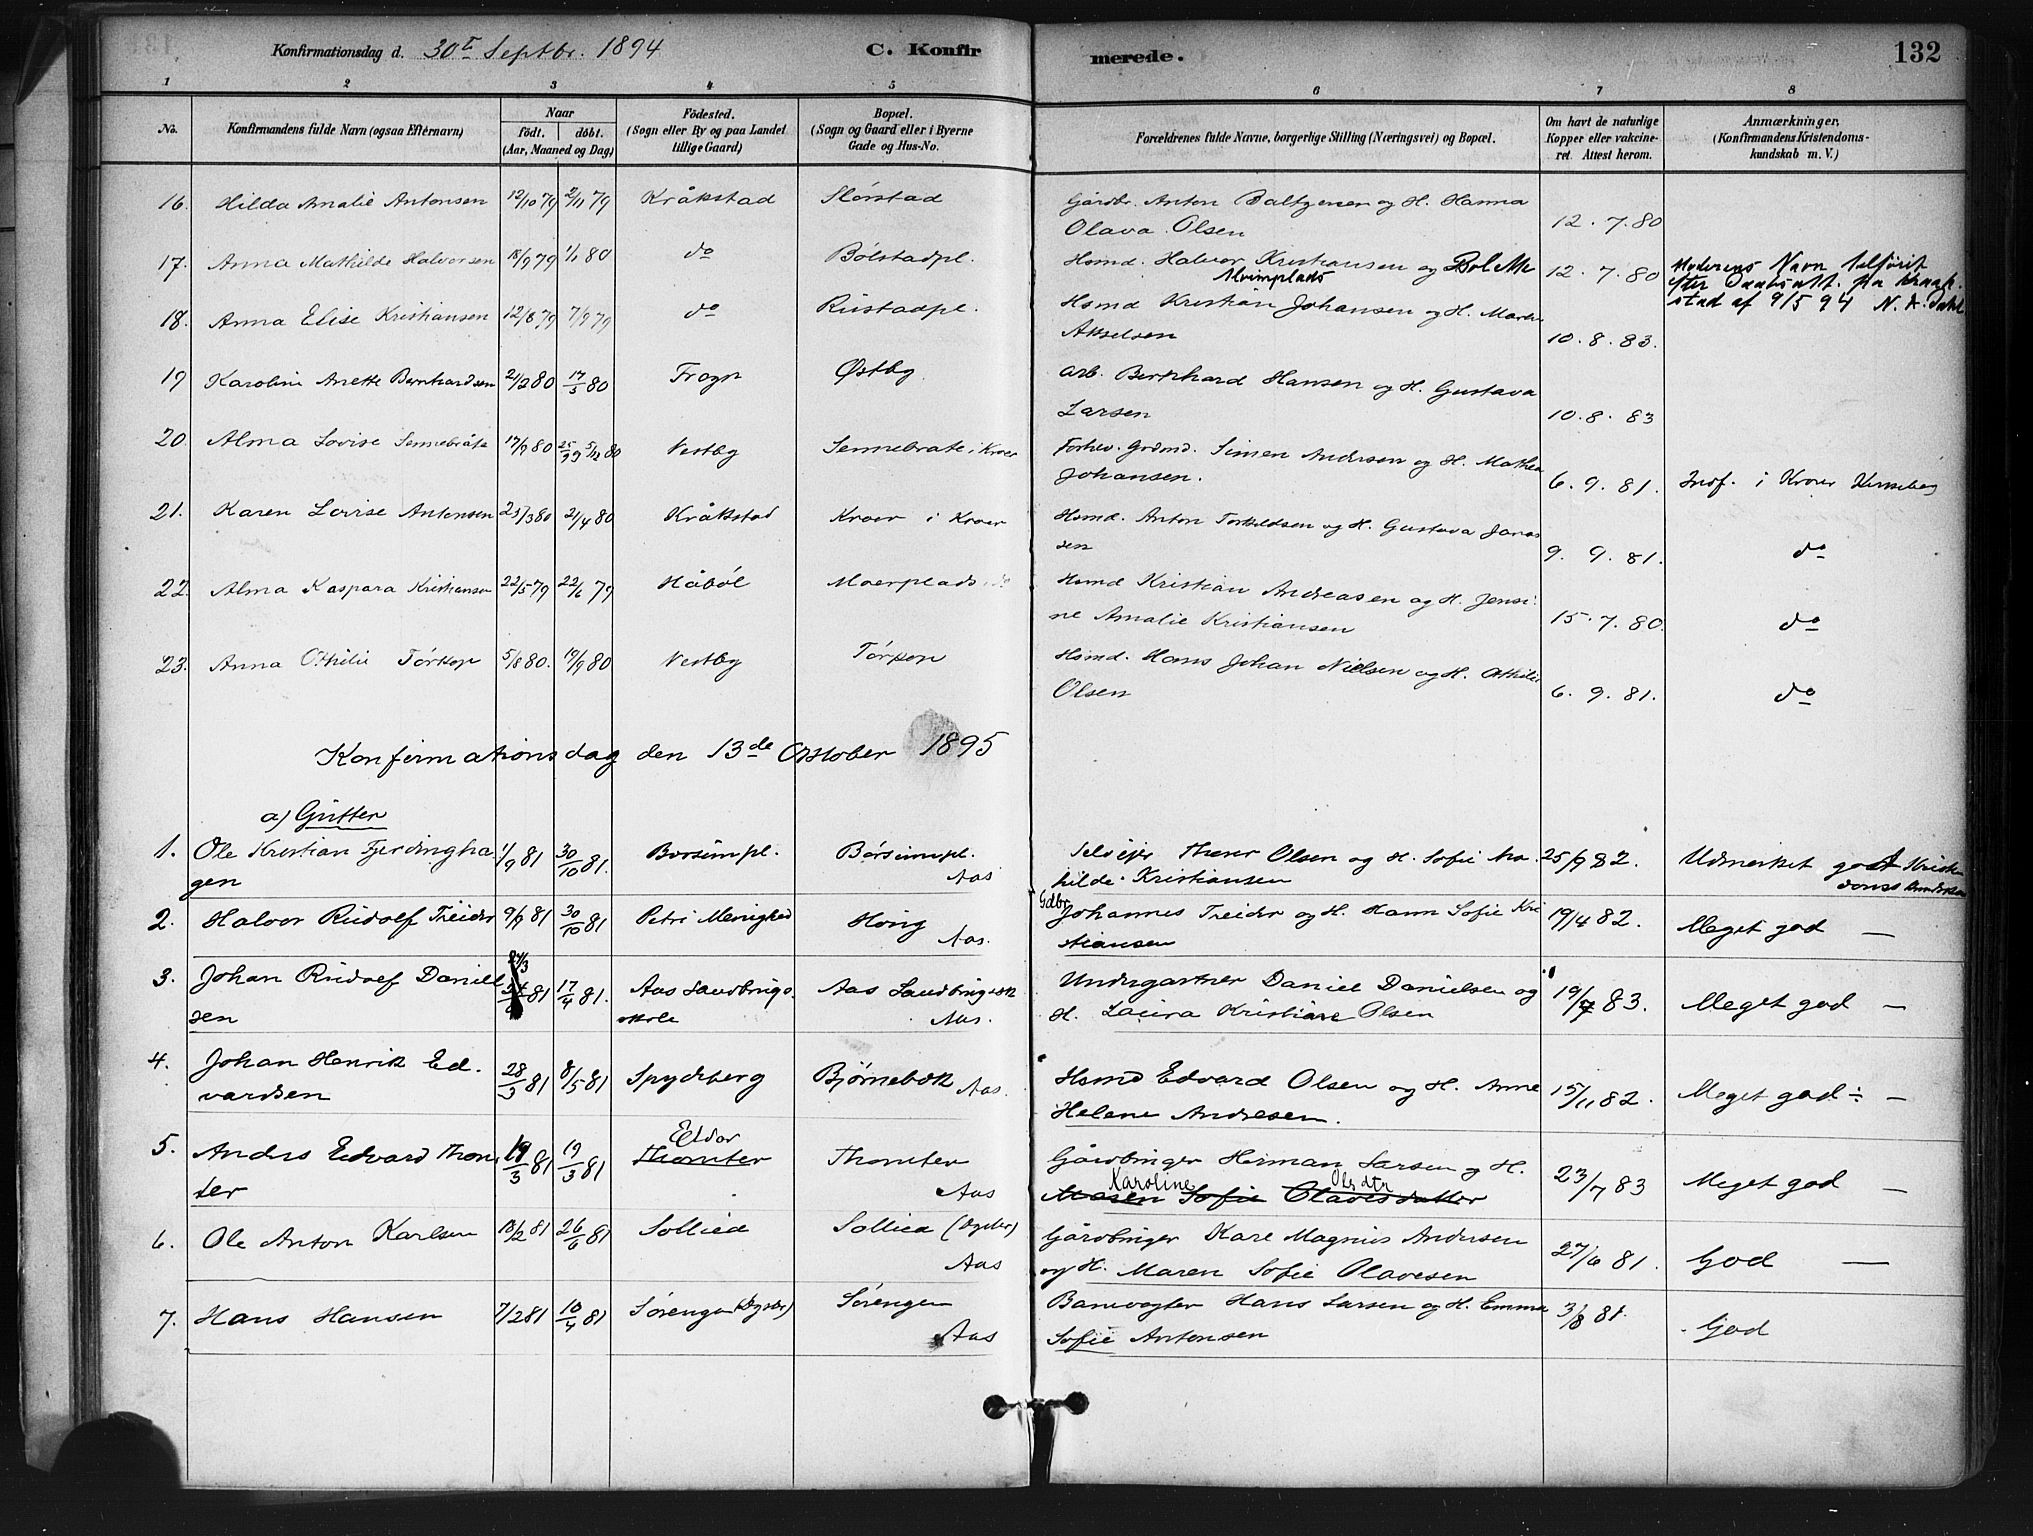 Konfirmationsdag d. 30te Septbr. 1894
C. Konfirmerede.
132
1 2 3 4 5 6 7 8
No. Konfirmandens fulde Navn (ogsaa Efternavn) Naar født. døbt. (Aar, Maaned og Dag) Fødested. (Sogn eller By og paa Landet tillige Gaard) Bopæl. (Sogn og Gaard eller i Byerne Gade og Hus-No. Forældrenes fulde Navne, borgerlige Stilling (Næringsvei) og Bopæl. Om havt de naturlige Kopper eller vakcineret. Attest herom. Anmærkninger, (Konfirmandens Kristendomskundskab m. V.)
16. Hilda Amalie Antonsen 12/10 79 2/11 79 Kråkstad Skørstad Gårdbr. Anton Baltzersen og H. Hanna
Olava Olsen 12. 7. 80
17. Anna Mathilde Halvorsen 18/9 79 1/1 80 do Bølstadpl. Hsmd. Halvor Kristiansen og 12. 7. 80 Moderens Navn tilføiet
efter Daabsatt. fra Kraakstad af 9/5 94 N. A. Dahl
18. Anna Elise Kristiansen 12/6 79 7/9 79 do Rustadpl. Hsmd Kristian Johansen og H. Maren
Akselsen 10. 8. 83.
19 Karoline Anette Bernhardsen 21/2 80 17/5 80 Frogn Østby Arb. Bernhard Hansen og H. Gustava
Larsen 10. 8. 83
20. Alma Lovise Sennebråte 17/9 80 5/12 80 Vestby Sennebråte i Kroer Forhv. Grdmd. Simen Andersen og H. Mathea
Johansen. 6. 9. 81. Indf. i Kroer Kirkebog
21. Karen Lovise Antonsen 25/3 80 2/4 80 Kråkstad Kroer i Kroer Hsmd. Anton Torkildsen og H. Gustava Jonassen 9. 9. 81. do
22. Alma Kaspara Kristiansen 22/5 79 22/6 79 Håbøl Moerplads. do Hsmd Kristian Andreasen og H. Jensine Amalie Kristiansen 15. 7. 80. do
23. Anna Othilie Tørkop 5/8 80. 19/9 80 Vestby Tørkop Hsmd. Hans Johan Nielsen og H. Othilie
Olsen 6. 9. 81. do
Konfirmationsdag den 13de Oktober 1895
a) Gutter
1. Ole Kristian Fjerdingha
gen 1/9 81 30/10 81. Børsumpl. Børsumpl.
Aas Selveier Thorer Olsen og H. Sofie Ma
thilde Kristiansen 25/9 82. Udmerket god Kristen
domskundskab
2. Halvor Rudolf Treider 9/9 81 30/10 81 Petri Menighed Høug
Aas. Gdbr. Johannes Treider og H. Hann Sofie Kri
stiansen 19/4 82. Meget god —
3. Johan Rudolf Daniel
sen 24/3 81 17/4 81. Aas Landbrugs.
skole Aas Landbrugssk
Aas. Undergartner Daniel Danielsen og
H. Laura Kristiane Olsen 19/7 83. Meget god —
4. Johan Henrik Ed.
vardsen 28/3 81 8/5 81 Spydeberg Bjørnebek Aas. Hsmd Edvard Olsen og H. Anne
Helene Andresen. 15/11 82. Meget god ÷ —
5. Anders Edvard Thom
ter 19/3 81 Eldor
Thomter Thomter
Aas Gårdbruger Herman Larsen og H.
Karoline Olsdtr
Maren Sofie Olavesdatter 23/7 83 Meget god —
6. Ole Anton Karlsen 18/2 81 26/6 81 Sollied Sollied (Dyster)
Aas Gårdbruger Karl Magnus Andersen
og H. Maren Sofie Olavesen 27/6 81. God —
7. Hans Hansen 7/2 81 10/4 81 Sørengen (Dyster) Sørengen
Aas Banevogter Hans Larsen og H. Emma
Sofie Antonsen 3/8 81. God